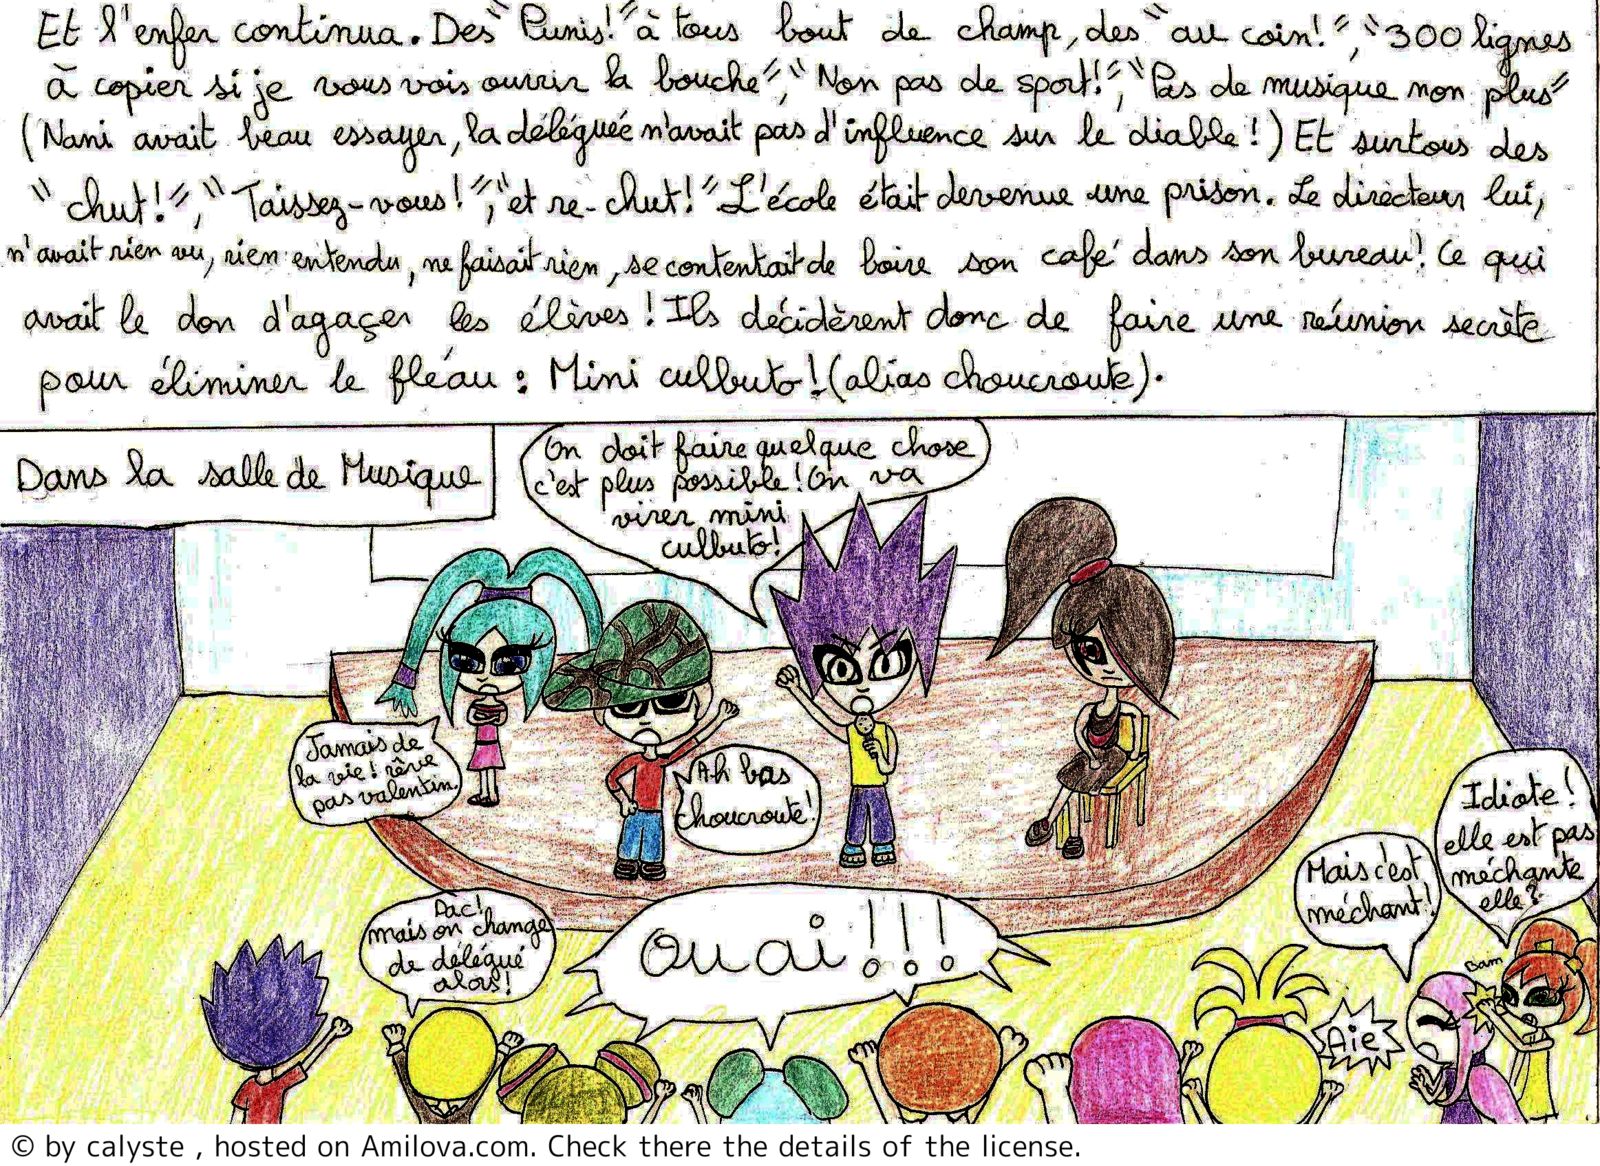 Et l'enfer continua. Des "Punis!" à tous bout de champ, des "au coin!", "300 lignes
à copier si je vous vois ouvrir la bouche", "Non pas de sport!", "Pas de musique non plus"
(Nani avait beau essayer, la déléguée n'avait pas d'influence sur le diable!) Et surtous des
"chut!", "Taissez-vous!", "et re-chut!" L'école était devenue une prison. Le directeur lui,
n'avait rien vu, rien entendu, ne faisait rien, se contentait de boire son café dans son bureau! Ce qui
avait le don d'agaçer les élèves! Ils décidèrent donc de faire une réunion secrète
pour éliminer le fléau : Mini culbuto! (alias choucroute).
Dans la salle de Musique
On doit faire quelque chose
c'est plus possible! On va
virer mini
culbuto!
Jamais de
la vie! rêve
pas valentin.
Ah bas
choucroute!
Idiote!
elle est pas
méchante
elle?
Mais c'est
méchant!
Dac!
mais on change
de délégué
alors!
Ouai!!!
Bam
Aïe
© by calyste , hosted on Amilova.com. Check there the details of the license.